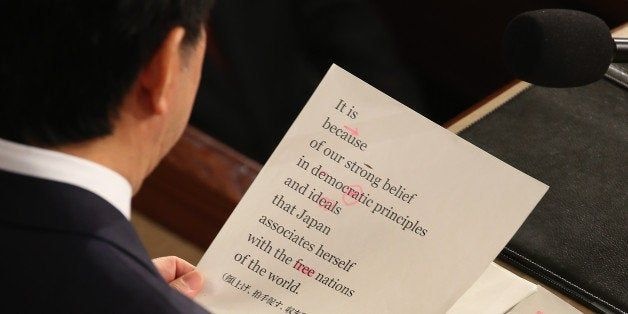 It is
because
of our strong belief
in democratic principles
and ideals
that Japan
associates herself
with the free nations
of the world.
(顔上げ、拍手促す、収ま